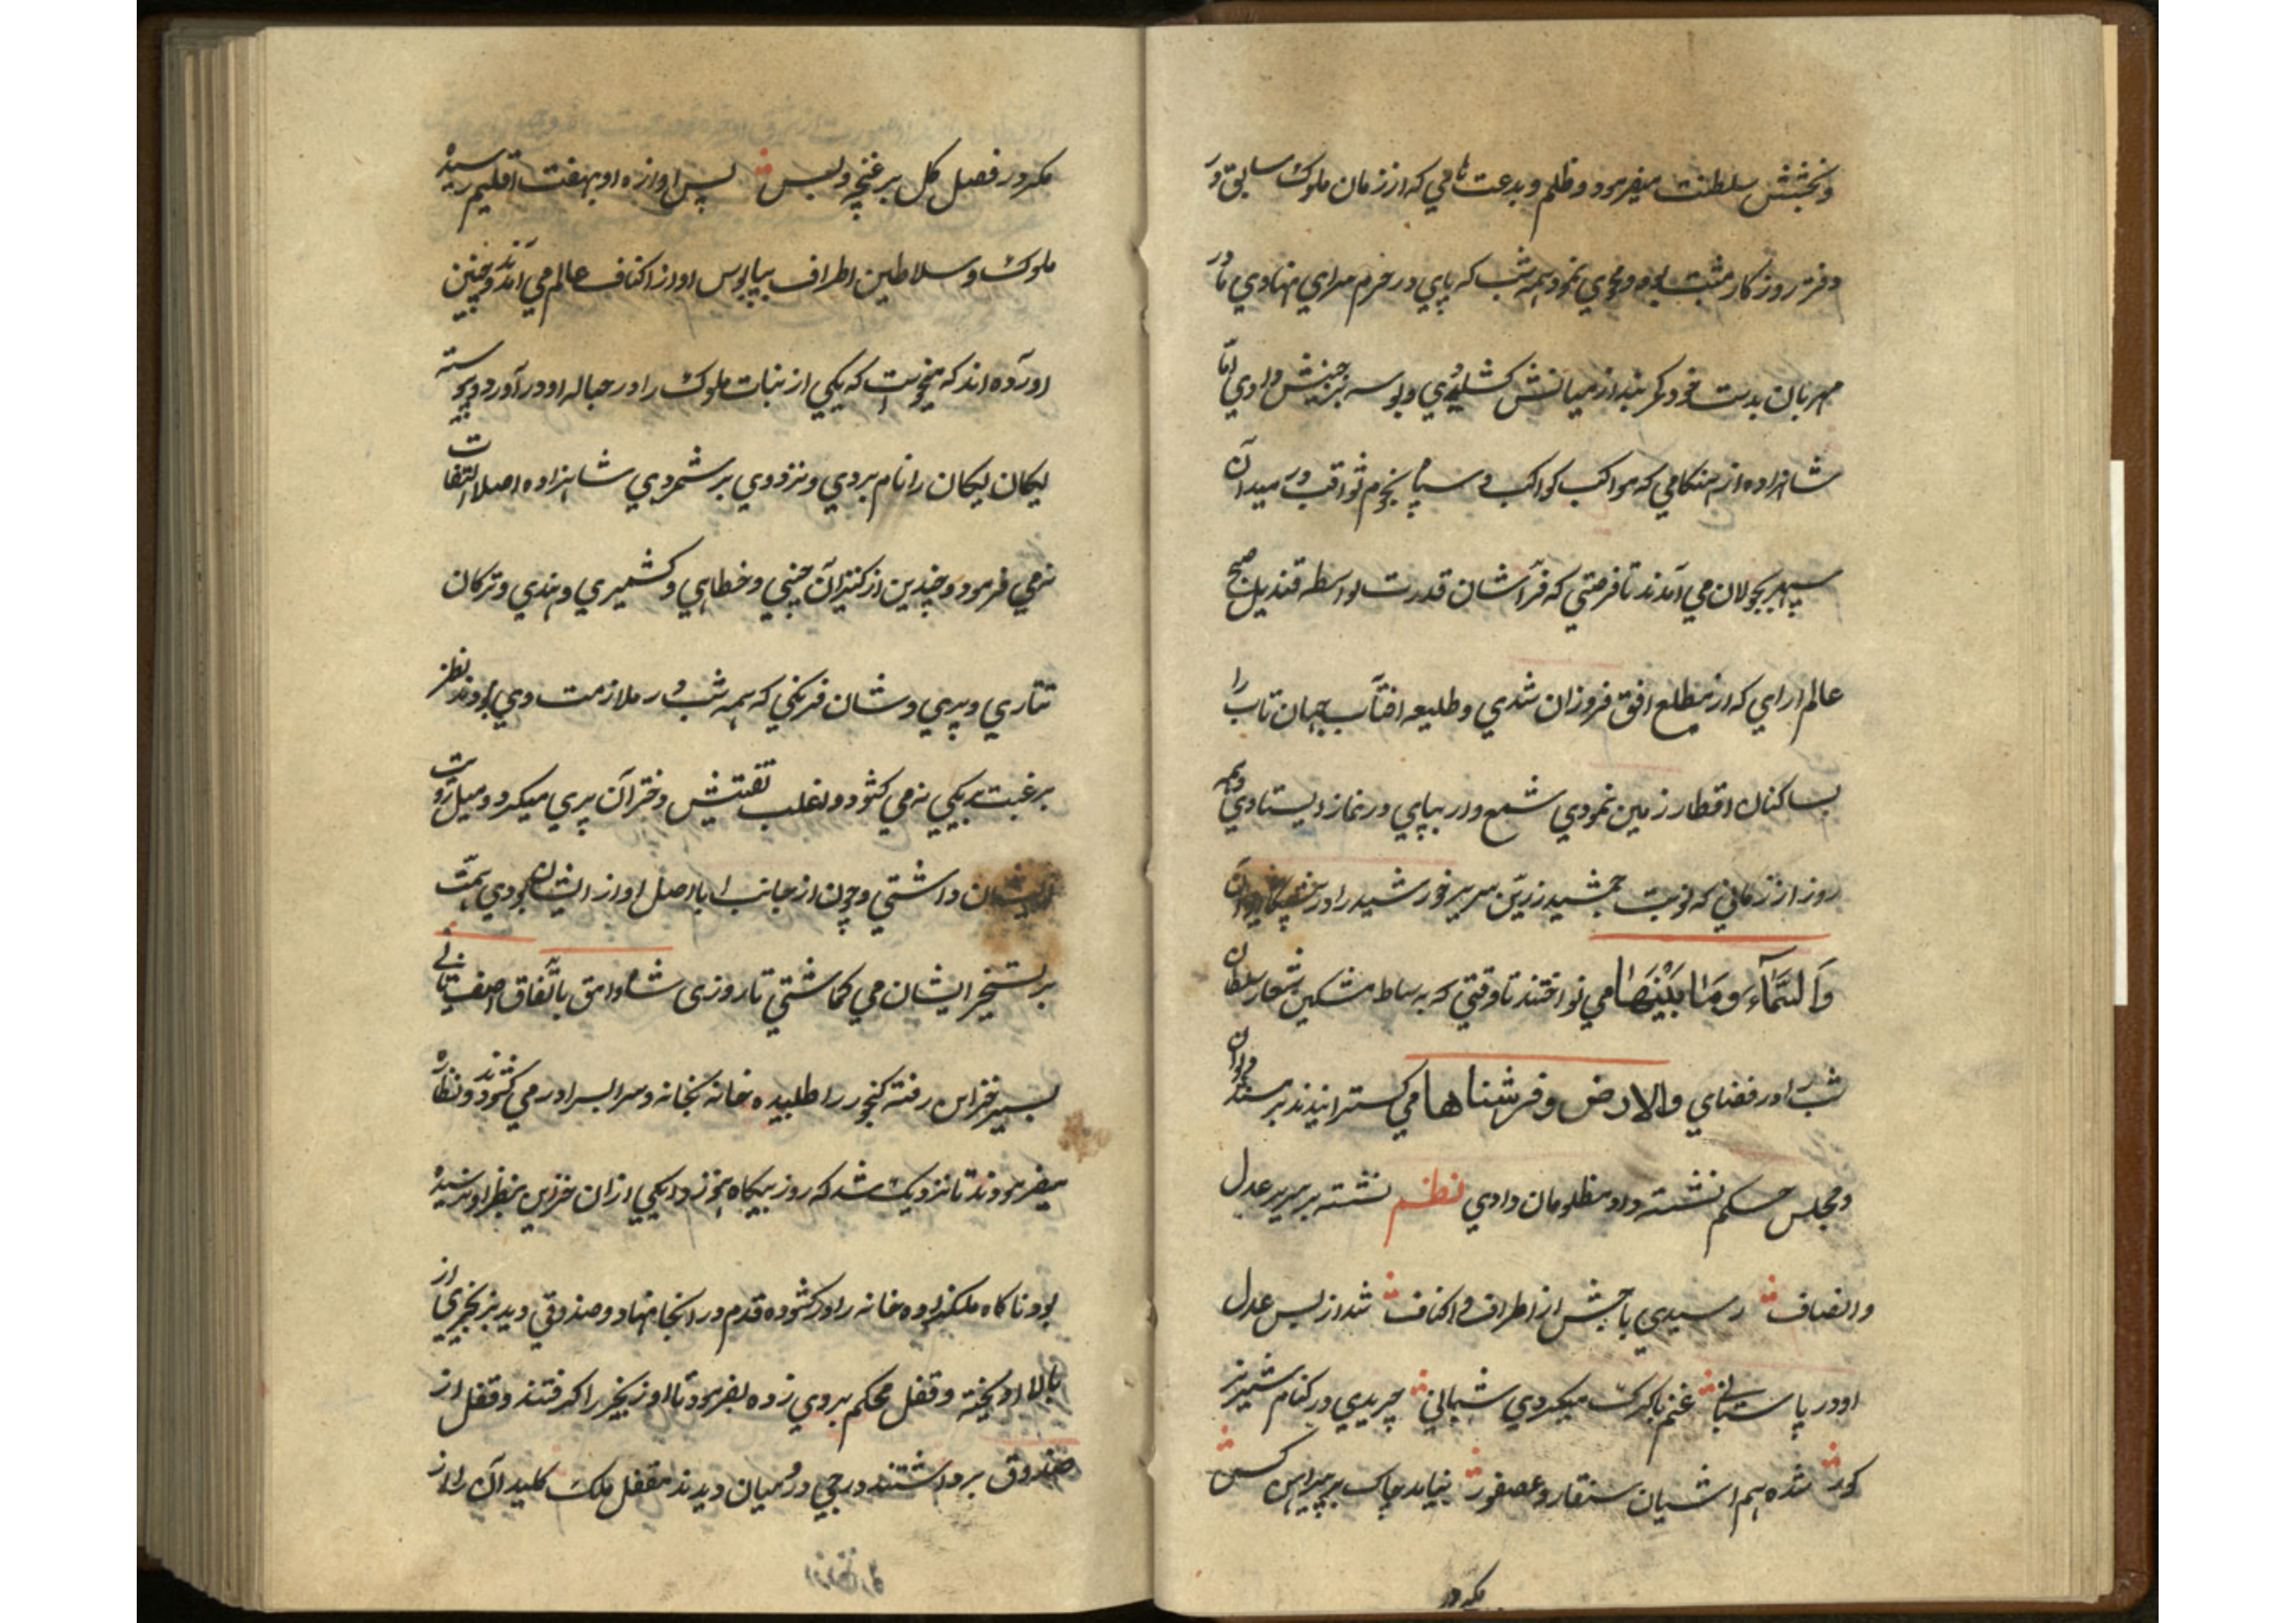 و بخشش سلطنت میفرمود و ظلم و بدعت هامی که از زمان ملوک سابق در
دفتر روزکار مثبت بود محوی نمود همه شب که پای در حرم سرای نهادی مادر
مهربان بدست خود کمر بند از میانش کشیدی و بوسه بر جبینش دادی اما
شاهزاده از هنکامی که مواکب کواکب و سپاه نجوم ثواقب در میدان
سپهر بجولان می آمدند تا فرصتی که فراشان قدرت بواسطه قندیل صبح
عالم ارای که از مطلع افق فروزان شدی و طلیعه افتاب جهان تاب را
بساکنان اقطار زمین نمودی شمع وار بیپای در نماز ایستادی و همه
روز از زمانی که نوبت جمشید زرین سریر خورشید را در ایوان
وَالسَّمَآءِ وَمَا بَیْنَهَا می نواختند تا وقتی که بساط مشکین شعار سلطان
شب را در فضای والارض وفرشناها می کسترانیدند بر مسند دیوان
و مجلس حکم نشسته داد مظلومان دادی نظم نشسته بر سریر عدل
و انصاف رسیدی باجش از اطراف و اکناف شد از بس عدل
او در پاسبانی غنم با کرک میکردی شبانی چریدی در کنام شیر نر
کور شده هم اشیان سنقار و عصفور نیابد چاک بر پیراهن کس
مکر در
مکر در فصل کل بر غنچه و بس پس اوازه او بهفت اقلیم رسید
ملوک و سلاطین اطراف بپابوس او از اکناف عالم می آمدند و چنین
اورده اند که میخواست که یکی از بنات ملوک را در حباله او در آورد و پیوسته
یکان یکان را نام بردی و نزد وی بر شمردی شاهزاده اصلا التفات
نمی فرمود و چندین از کنیزان چینی و خطاهی و کشمیری و هندی و ترکان
تتاری و پری وشان فرنکی که همه شب در ملازمت وی بودند نظر
برغبت بریکی نمی کشود و اغلب تفتیش دختران پری میکرد و میل رویت
ایشان داشتی و چون از جانب ابا اصل او از ایشان بودی همت
بر تسخیر ایشان می کماشتی تا روزی شاه وامق باتفاق اصف ثانی
بسیر خزاین رفته کنجور را طلبیده خانه بخانه و سرا بسرا در می کشودند و نظاره
میفرمودند تا نزدیک شد که روز بیکاه هنوز یکی از ان خزاین بنظر او نرسیده
بود ناکاه ملکزاده خانه را در کشوده قدم در انجا نهاد و صندوقی دید بزنجیری از
بالا اویخته و قفل محکم بروی زده بفرمود تا او زنجیر را کرفتند و قفل از
صندوق برداشتند درجی در میان دیدند مقفل ملک کلید آن را از